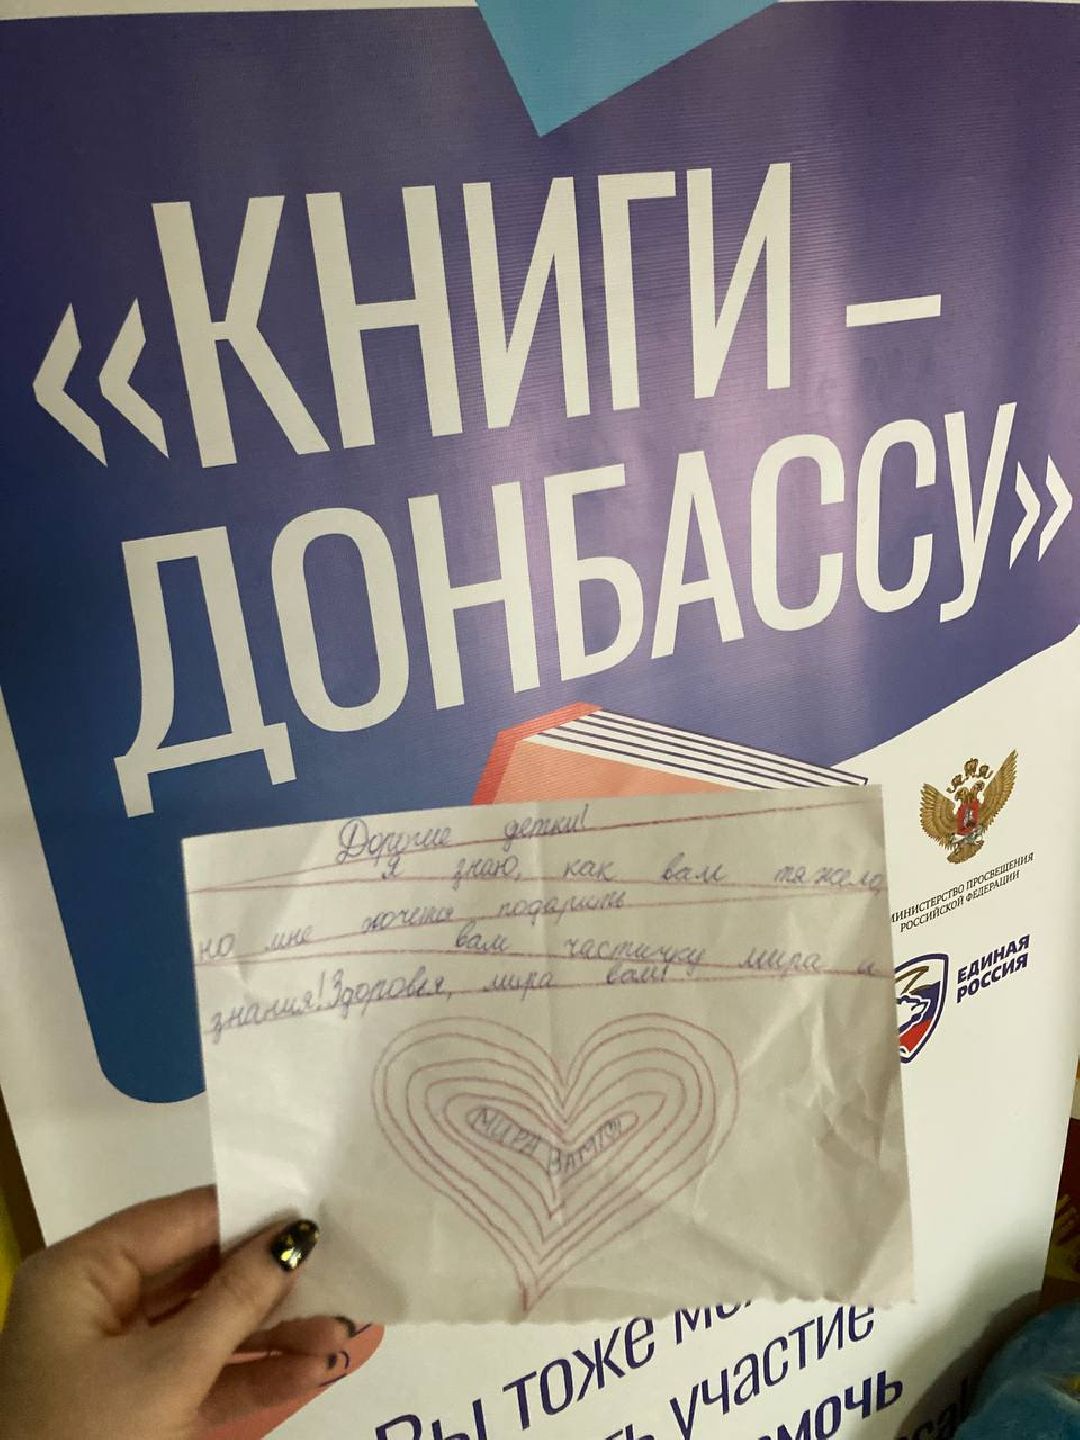 «КНИГИ –
ДОНБАССУ»
МИНИСТЕРСТВО ПРОСВЕЩЕНИЯ
РОССИЙСКОЙ ФЕДЕРАЦИИ
ЕДИНАЯ
РОССИЯ
Дорогие детки!
Я знаю, как вам тяжело,
но мне хочется подарить
вам частичку мира и
знания! Здоровья, мира вам!
МИРА ВАМ!
Вы тоже
участие